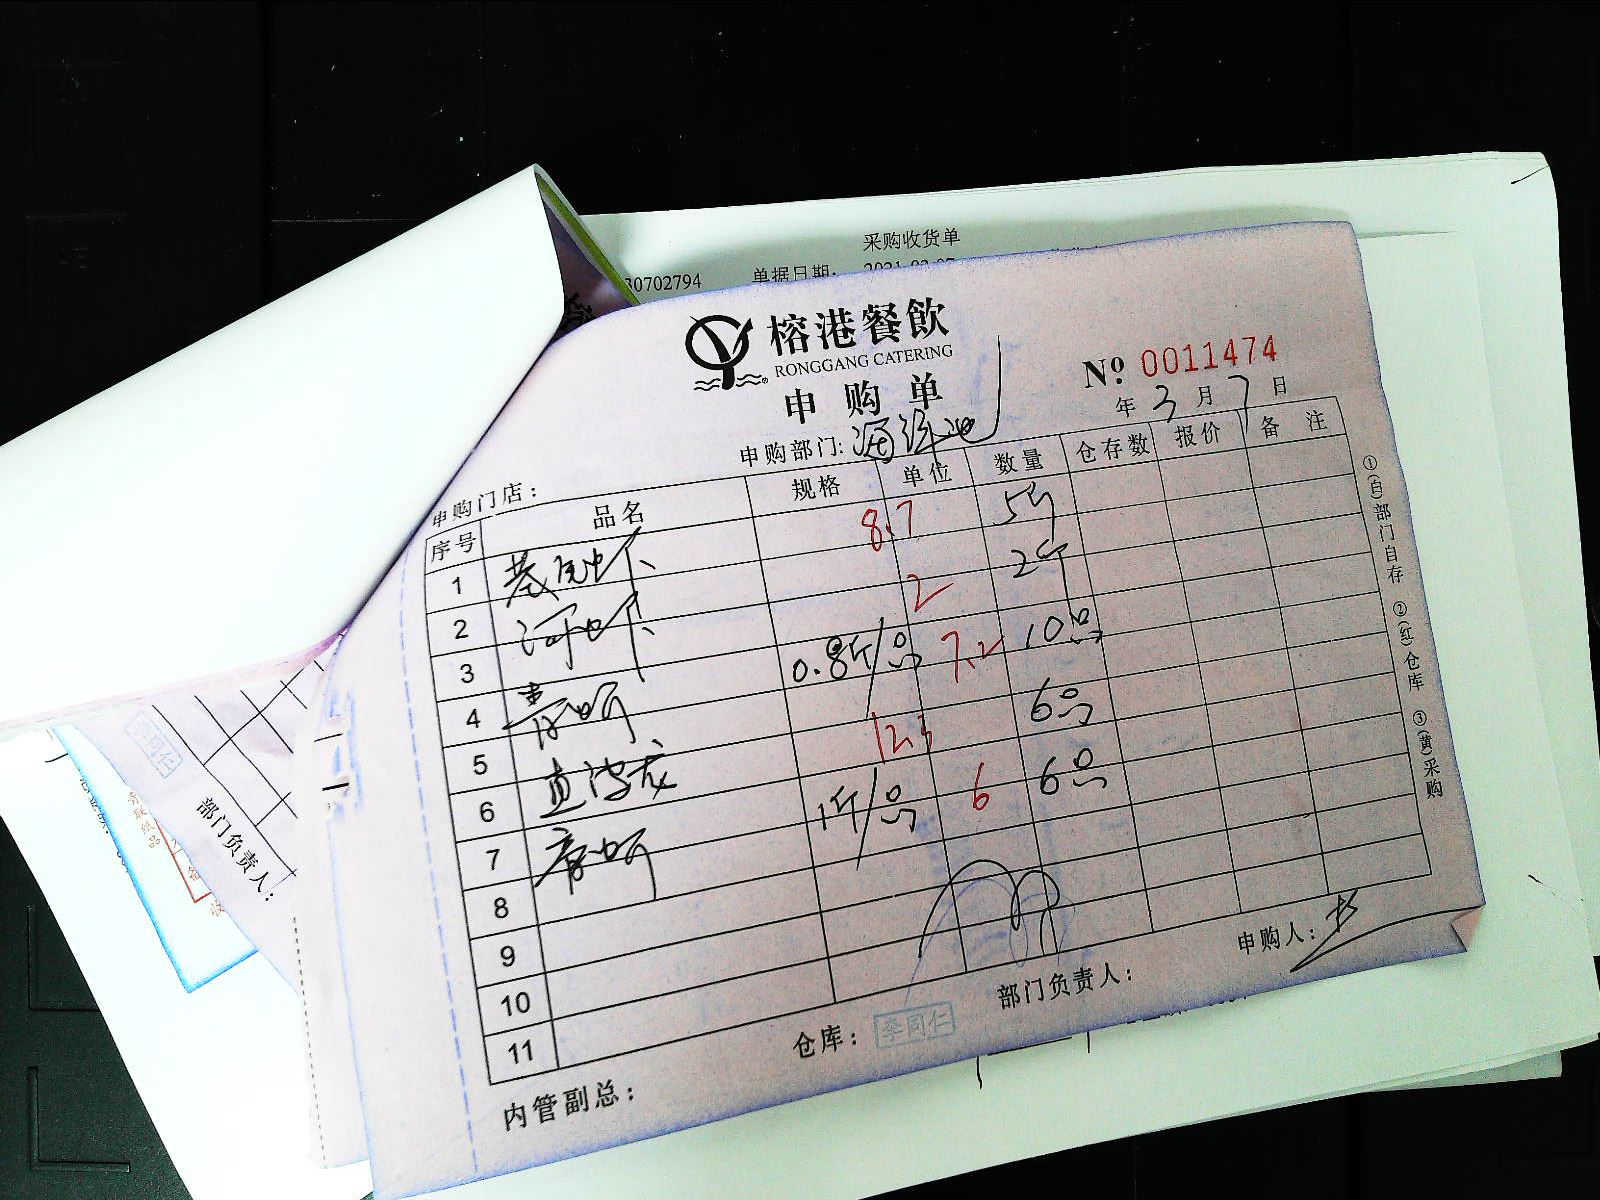 采购收货单
30702794 单据日期:
榕港餐飲
RONGGANG CATERING
申购单
Nº 0011474
年 3 月 7 日
申购部门: 海鲜池
申购门店:
序号 品名 规格 单位 数量 仓存数 报价 备注
1 基尾虾 8.7 5斤
2 河虾 2 2斤
3 0.8斤/只 7.2 10只
4 青
5 12.3 6只
6 龙 1斤/只 6 6只
7
8
9
10
11
仓库: 李同仁
部门负责人:
申购人:
内管副总:
①(白)部门自存 ②(红)仓库 ③(黄)采购
李同仁
部门负责人:
联纸品